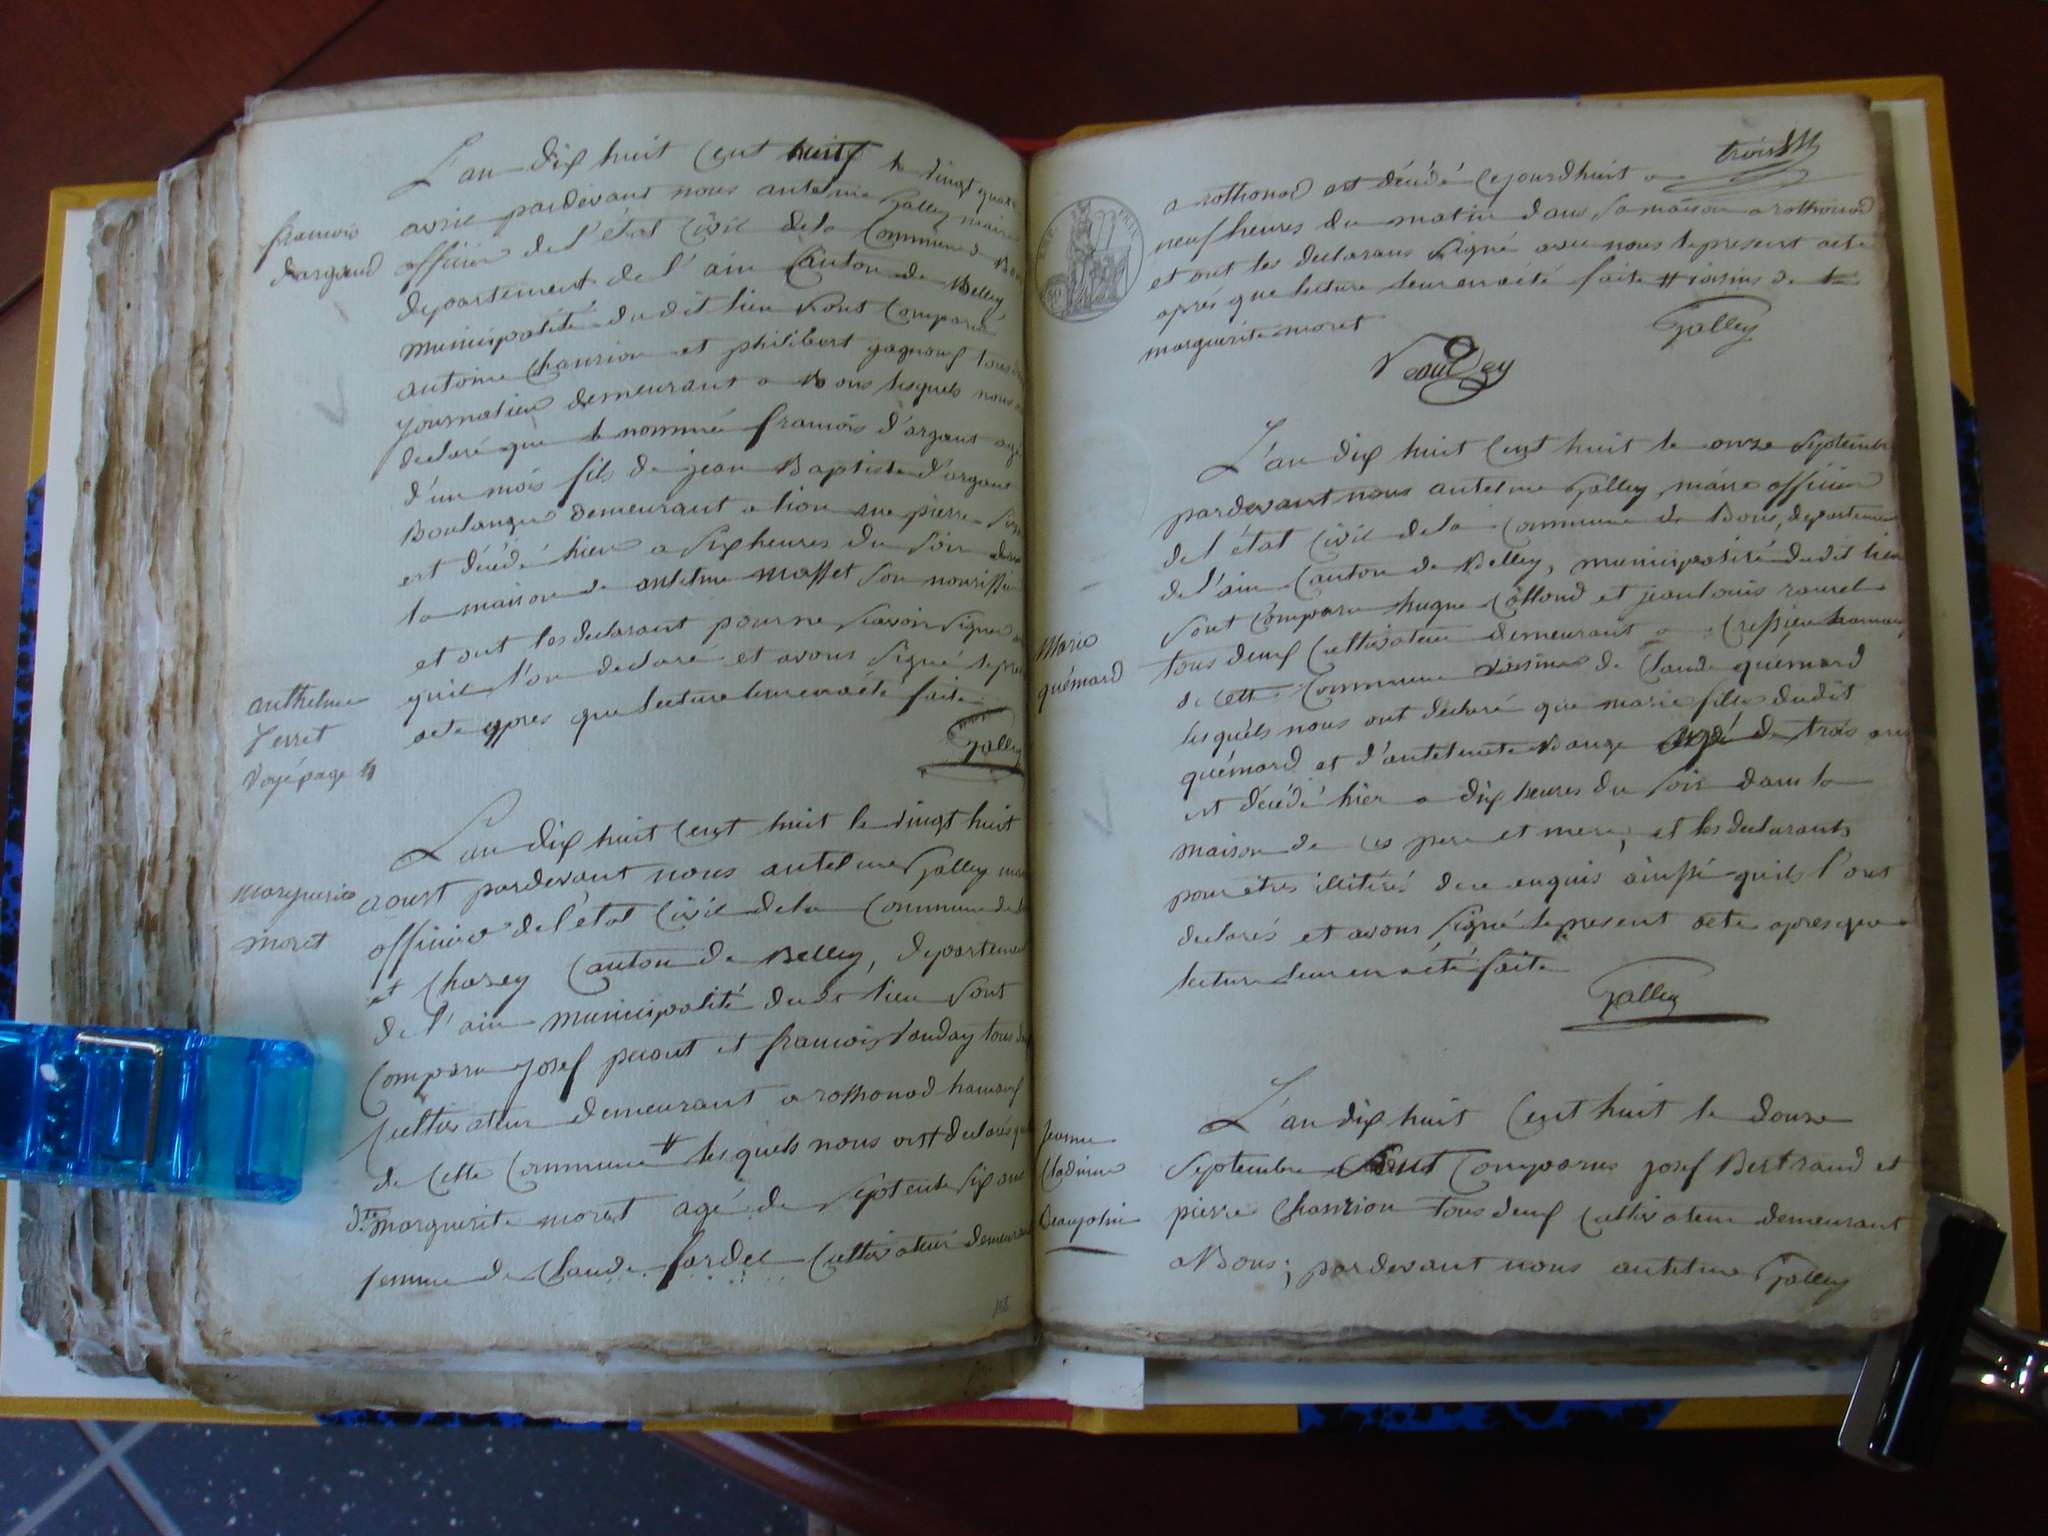 L'an dix huit cent huit le vingt quatre
francois
dargaud
avril pardevant nous antelme Galley maire
officier de l'état civil de la Commune de Bons
departement de l'ain Canton de Belley
municipalité dudit lieu sont comparu
antoine Chanrion et philibert gagneux tous deux
journalier demeurant a Bons lesquels nous ont
declaré que le nommé francois d'argaut agé
d'un mois fils de jean Baptiste d'argaut
Boulanger demeurant a lion rue pierre
est décédé hier a six heures du soir dans
la maison de antelme masset son nourissier
et ont les declarant pour ne scavoir signer
quil l'on declaré et avons signé le present
acte apres que lecture leur en a été faite
Galley
anthelme
Perret
Voyé page 4
L'an dix huit cent huit le vingt huit
marguerie
moret
aoust pardevant nous antelme Galley maire
officier de l'état Civil de la Commune de
et Chazey Canton de Belley, departement
de l'ain municipalité dudit lieu sont
Comparu josef picout et francois vauday tous deux
Cultivateur demeurant a rothonod hameau
de cette Commune # lesquels nous ont declarés que
dte marguerite moret agé de septente six ans
femme de Claude fardel Cultivateur demeurant
trois
a rothonod est décédé cejourdhuit a
neuf heures du matin dans sa maison a rothonod
et ont les declarans signé avec nous le present acte
après que lecture leur en a été faite # voisins de la
marguerite moret
Galley
Vauday
L'an dix huit cent huit le onze septembre
pardevant nous antelme Galley maire officier
de l'état Civil de la Commune de Bons, departement
de l'ain Canton de Belley, municipalité dudit lieu
sont comparu hugue Collond et jean louis ravet
Marie
quémard
tous deux Cultivateur demeurant a Cressieu hameau
de cette Commune voisines de Claude quémard
lesquéls nous ont declaré que marie fille dudit
quémard et d'antelmette Bauge agé de trois ans
est décédé hier a dix heures du soir dans la
maison de ces pere et mere, et les declarants
pour êtres illitirés de ce enquis ainssi quils l'ont
declarés et avons signé le present acte apres que
lecture leur en a été faite
Galley
L'an dix huit cent huit le douze
Jeanne
Cladinne
Beaujolin
septembre sont Comparus josef Bertrand et
pierre Chanrion tous deux Cultivateur demeurant
a Bons; pardevant nous antelme Galley